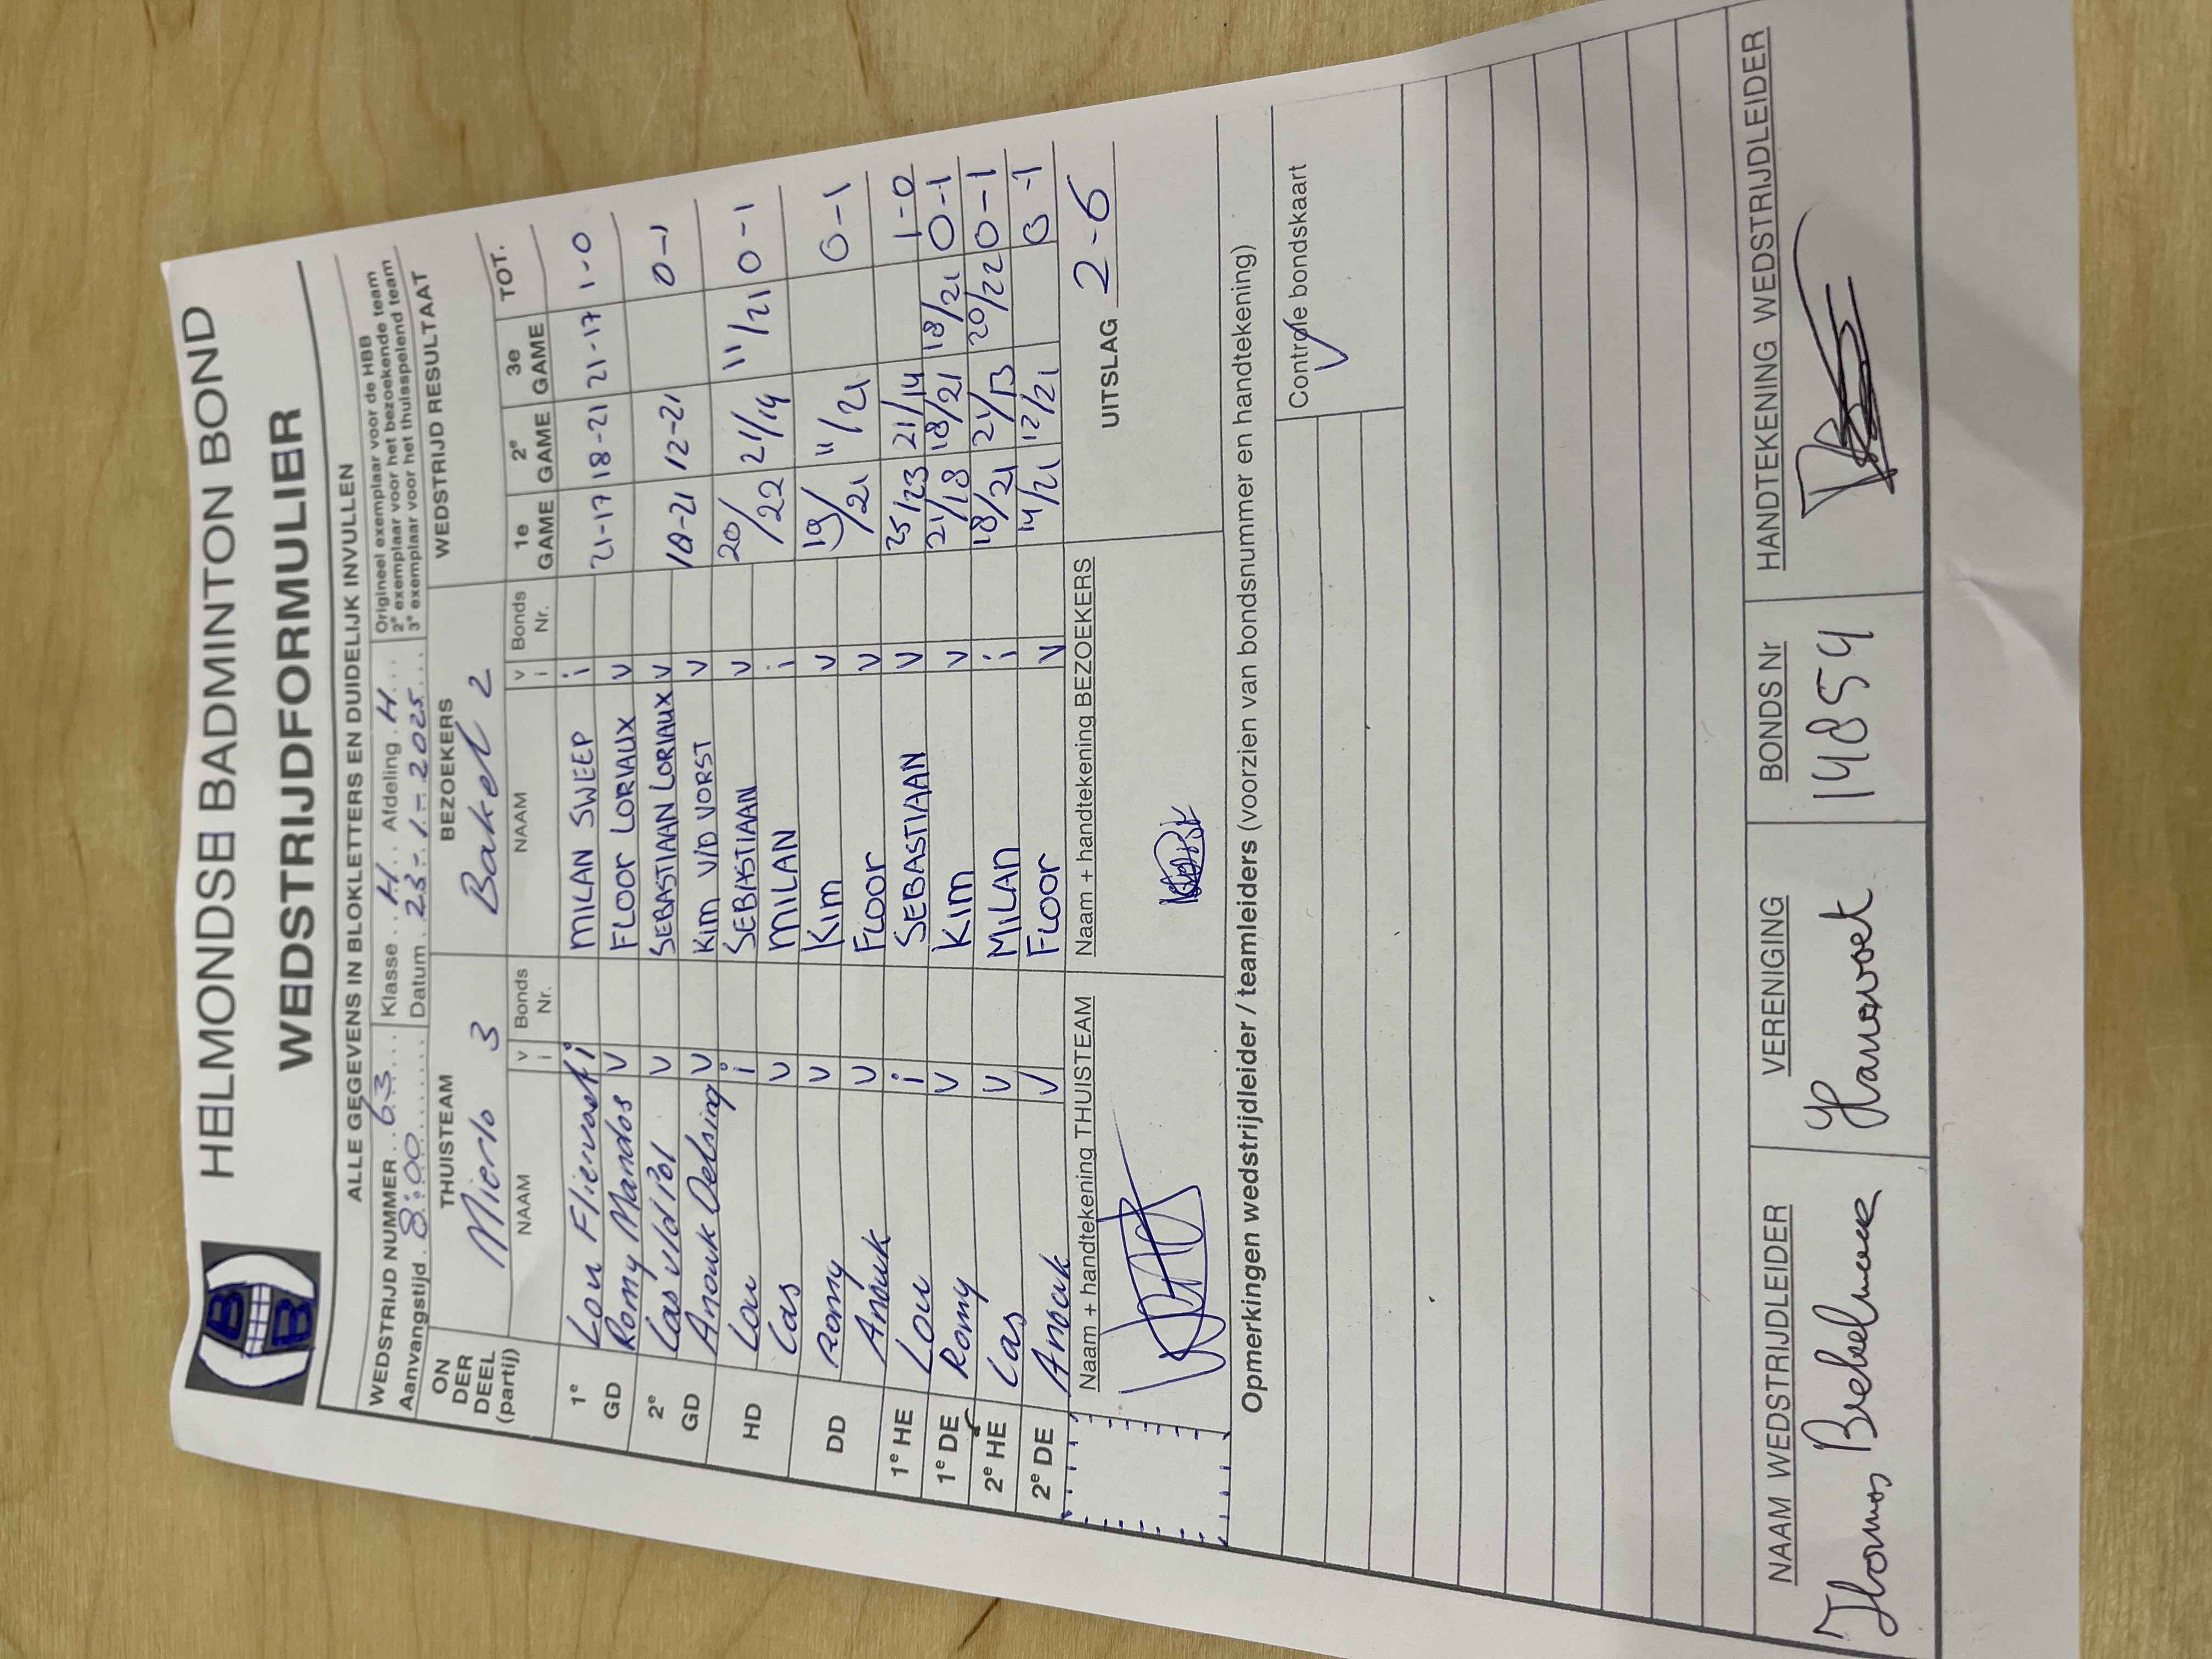 HELMONDSE BADMINTON BOND
WEDSTRIJDFORMULIER
ALLE GEGEVENS IN BLOKLETTERS EN DUIDELIJK INVULLEN
WEDSTRIJD NUMMER 63 Klasse H Afdeling H
Origineel exemplaar voor de HBB
Aanvangstijd 8:00 Datum 23-1-2025
2e exemplaar voor het bezoekende team
3e exemplaar voor het thuisspelend team
ON DER DEEL (partij) THUISTEAM BEZOEKERS WEDSTRIJD RESULTAAT
Mierlo 3 Bakel 2
NAAM v i Bonds Nr. NAAM v i Bonds Nr. 1e GAME 2e GAME 3e GAME TOT.
1e GD Lou i MILAN SWEEP i 21-17 18-21 21-17 1-0
Romy Mandos v FLOOR LORIAUX v
2e GD Cas v/d Pol v SEBASTIAAN LORIAUX v 18-21 12-21 0-1
Anouk Delsing v KIM V/D VORST v
HD Lou i SEBASTIAAN v 20/22 21/19 11/21 0-1
Cas v MILAN i
DD Romy v KIM v 19/21 11/21 0-1
Anouk v FLOOR v
1e HE Lou i SEBASTIAAN v 25/23 21/14 1-0
1e DE Romy v KIM v 21/18 18/21 18/21 0-1
2e HE Cas v MILAN i 18/21 21/13 20/22 0-1
2e DE Anouk v FLOOR v 14/21 12/21 0-1
Naam + handtekening THUISTEAM Naam + handtekening BEZOEKERS UITSLAG 2-6
Opmerkingen wedstrijdleider / teamleiders (voorzien van bondsnummer en handtekening)
Controle bondskaart
NAAM WEDSTRIJDLEIDER VERENIGING BONDS Nr HANDTEKENING WEDSTRIJDLEIDER
Thomas 14854